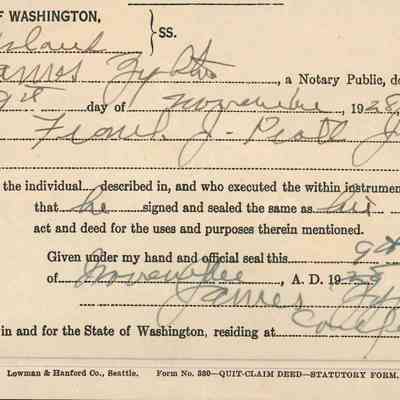 F WASHINGTON,
Island } SS.
James Zylstra, a Notary Public, do
9th day of November, 1928,
Frank J. Pratt Jr
the individual described, in and who executed the within instrumen
that he signed and sealed the same as his
act and deed for the uses and purposes therein mentioned.
Given under my hand and official seal this 9th
of November, A. D. 1928
James Zyl
in and for the State of Washington, residing at Coupe
Lowman & Hanford Co., Seattle. Form No. 380—QUIT-CLAIM DEED—STATUTORY FORM.